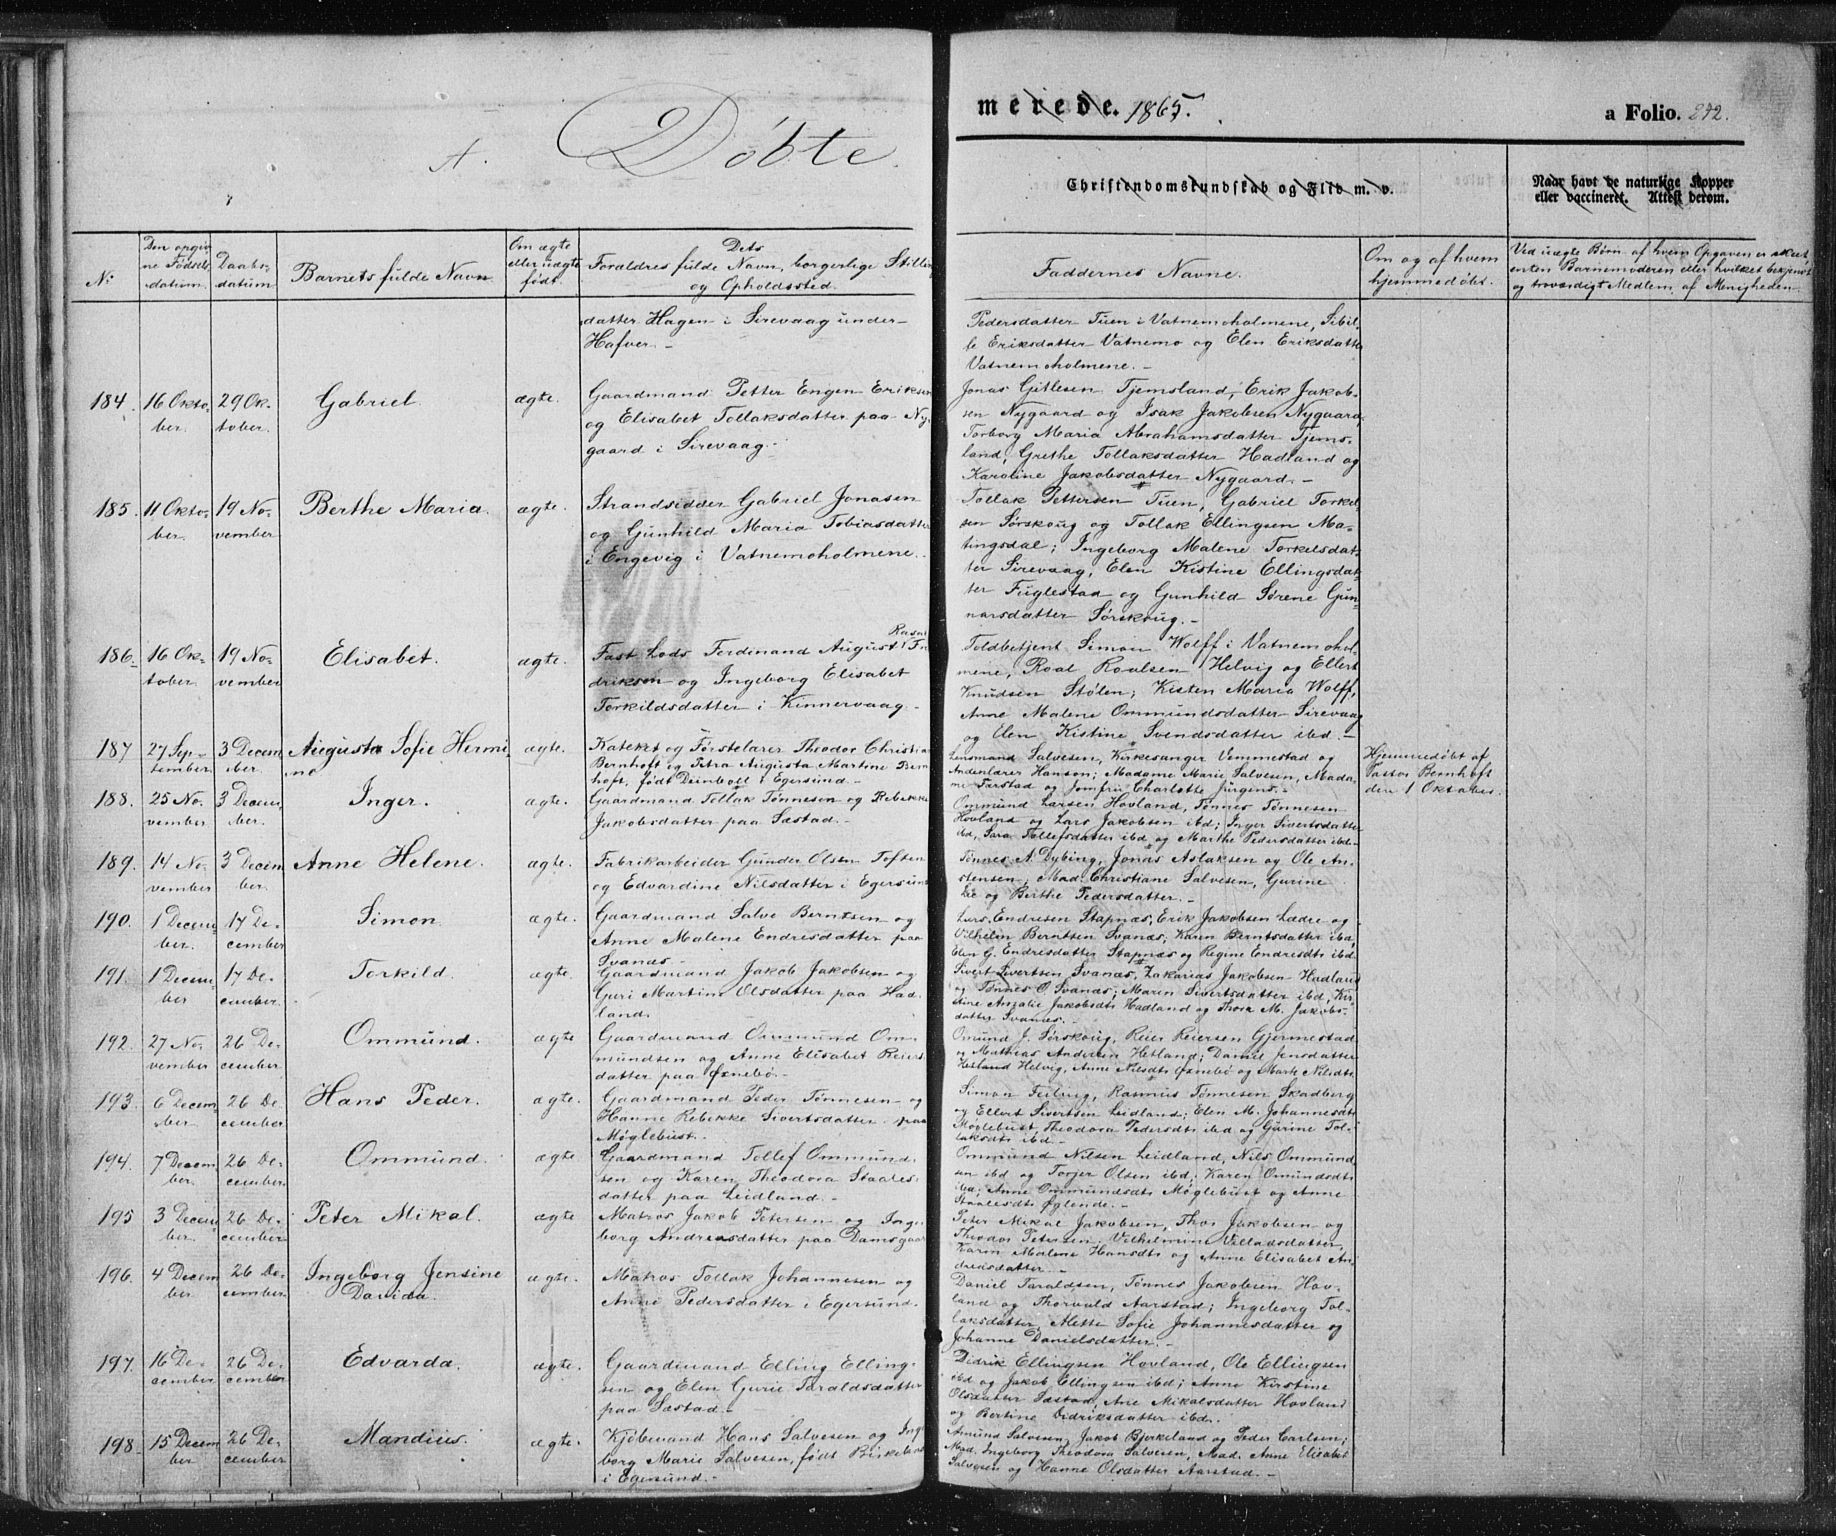 A. Döbte.
merede. 1865.
a Folio. 242.
Christendomskundskab og Flid m. v.
Naar havt de naturlige Kopper
eller vaccineret. Attest derom.
No
Den opgiv
ne Födsels
datum.
Daabs-
datum.
Barnets fulde Navn.
Om ægte
eller uægte
födt.
Dets
Foraldres fulde Navn, borgerlige Stilling
og Opholdssted.
Faddernes Navne.
Om og af hvem
hjemmedöbt.
Ved uægte Börn, af hvem Opgaven er skeet
enten Barnemoderen eller hvilket bekjendt
og troværdigt Medlem af Menigheden.
datter Hagen i Sirevaag under
Hafver.
Pedersdatter Tuen i Vatnemoholmene, Sibil-
le Eriksdatter Vatnemo og Elen Eriksdatter
Vatnemoholmene.
184. 16 Okto-
ber. 29 Ok-
tober. Gabriel. ægte.
Gaardmand Petter Engen Eriksen
og Elisabet Tollaksdatter paa Ny-
gaard i Sirevaag.
Jonas Gitlesen Tjemsland, Erik Jakob-
sen Nygaard og Isak Jakobsen Nygaard,
Torborg Maria Abrahamsdatter Tjems-
land, Grethe Tollaksdatter Hadland og
Karoline Jakobsdatter Nygaard.
185. 11 Okto-
ber. 19 No-
vember. Berthe Maria. ægte.
Strandsidder Gabriel Jonasen
og Gunhild Maria Tobiasdatter
i Engevig i Vatnemoholmene.
Tollak Pettersen Tuen, Gabriel Torkel-
sen Sörskoug og Tollak Ellingsen Ma-
tingsdal; Ingeborg Malene Torkelsdat-
ter Sirevaag, Elen Kistine Ellingsdat-
ter Fuglestad og Gunhild Sörene Gun-
narsdatter Sörskoug.
186. 16 Ok-
tober. 19 No-
vember. Elisabet. ægte.
Fast Lods Ferdinand August
driksen og Ingeborg Elisabet
Torkildsdatter i Kinnervaag.
Toldbetjent Simon Wolff i Vatnemohol-
mene, Roal Roalsen Helvig og Ellert
Knudsen Stölen; Kisten Maria Wolff,
Anne Malene Ommundsdatter Sirevaag
og Elen Kistine Svendsdatter ibd.
187 27 Sep-
tember. 3 Decem
ber. Augusta Sofie Hermi-
ne ægte.
Kateket og Förstelærer Theodor Christian
Bernhoft og Petra Augusta Martine Bern
hoft, födt Deinboll i Egersund.
Lensmand Salvesen, Kirkesanger Vemmestad og
Andenlærer Hanson; Madame Marie Salvesen, Mada-
me Tarstad og Jomfru Charlotte Jürgens.
Hjemmedöbt af
Pastor Bernhoft
den 1 Oktober.
188. 25 No-
vember 3 Decem
ber. Inger. ægte.
Gaardmand Tollak Tönnesen og Rebekke
Jakobsdatter paa Sæstad.
Ommund Larsen Hovland, Tönnes Tönnesen
Hovland og Lars Jakobsen ibd; Inger Sivertsdatter
ibd, Sara Tollefsdatter ibd og Marthe Pedersdatter ibd.
189. 14 No-
vember 3 Decem
ber. Anne Helene. ægte.
Fabrikarbeider Gunder Olsen Toften
og Edvardine Nilsdatter i Egersund
Tönnes A. Dybing, Jonas Aslaksen og Ole An-
stensen; Mad. Christiane Salvesen, Gurine
Lie og Berthe Pedersdatter.
190. 1 Decem-
ber. 17 De-
cember Simon. ægte.
Gaardmand Salve Berntsen og
Anne Malene Endresdatter paa
Svanæs.
Lars Endresen Stapnæs, Erik Jakobsen Lædre og
Vilhelm Berntsen Svanæs; Karen Berntsdatter ibd,
Elen G. Endresdatter Stapnæs og Regine Endresdts ibd.
191. 1 Decem-
ber 17 De-
cember. Torkild. ægte.
Gaardmand Jakob Jakobsen og
Guri Martine Olsdatter paa Had-
land.
Sivert Sivertsen Svanæs, Zakarias Jakobsen Hadland
og Tönnes O Svanæs; Maren Sivertsdatter ibd, Kir-
stine Amalie Jakobsdts Hadland og Thora M. Jakobs-
datter Svanæs.
192. 27 No-
vember 26 De-
cember. Ommund. ægte
Gaardmand Ommund Om-
mundsen og Anne Elisabet Reiers-
datter paa Öxnebö.
Omund J. Sörskoug, Reier Reiersen Gjermestad
og Mathias Andersen Hetland; Daniel Jensdatter
Hetland Helvig, Anne Nilsdts Öxnebö og Marte Nilsdts
193. 6 Decem
ber. 26 De-
cember. Hans Peder. ægte.
Gaardmand Peder Tönnesen og
Hanne Rebekke Sivertsdatter paa
Möglebust.
Simon Feilvig, Rasmus Tönnesen Skadberg
og Ellert Sivertsen Leidland; Elen M. Johannesdts
Möglebust, Theodora Pedersdts ibd og Gurine Tol-
laksdts ibd.
194. 7 Decem
ber. 26 De-
cember. Ommund. ægte
Gaardmand Tollef Ommund-
sen og Karen Theodora Staales-
datter paa Leidland.
Ommund Nilsen Leidland, Nils Ommund
sen ibd og Torjer Olsen ibd; Karen Omundsdts
ibd; Anne Ommundsdts Möglebust og Anne
Staalesdts Öglende.
195 3 Decem
ber. 26 De-
cember Peter Mikal. ægte
Matros Jakob Petersen og Inge-
borg Andreasdatter paa Damsgaard
Peter Mikal Jakobsen, Thor Jakobsen og
Theodor Petersen; Vilhelmine Villadsdatter,
Karen Malene Hansdts og Anne Elisabet An-
dreasdatter.
196. 4 Decem
ber. 26 De-
cember. Ingeborg Jensine
Davida. ægte.
Matros Tollak Johannesen og
Anne Pedersdatter i Egersund.
Daniel Taraldsen, Tönnes Jakobsen Hov-
land og Thorvald Aarstad; Ingeborg Tol-
laksdatter, Mette Sofie Johannesdatter og
Johanne Danielsdatter.
197. 16 De-
cember 26 De-
cember Edvarda. ægte.
Gaardmand Elling Elling-
sen og Elen Gurie Taraldsdatter
paa Sæstad.
Didrik Ellingsen Hovland, Ole Ellingsen
ibd og Jakob Ellingsen ibd; Anne Kirstine
Olsdatter Sæstad, Ane Mikalsdatter Hovland
og Bertine Didriksdatter ibd.
198. 15 Decem
ber 26 De-
cember Mandius. ægte.
Kjöbmand Hans Salvesen og Inge
borg Marie Salvesen, födt Birkeland
i Egersund.
Amund Salvesen, Jakob Bjerkeland og Peder Carlsen;
Mad. Ingeborg Theodora Salvesen, Mad. Anne Elisabet
Salvesen og Hanne Olsdatter Aarstad.